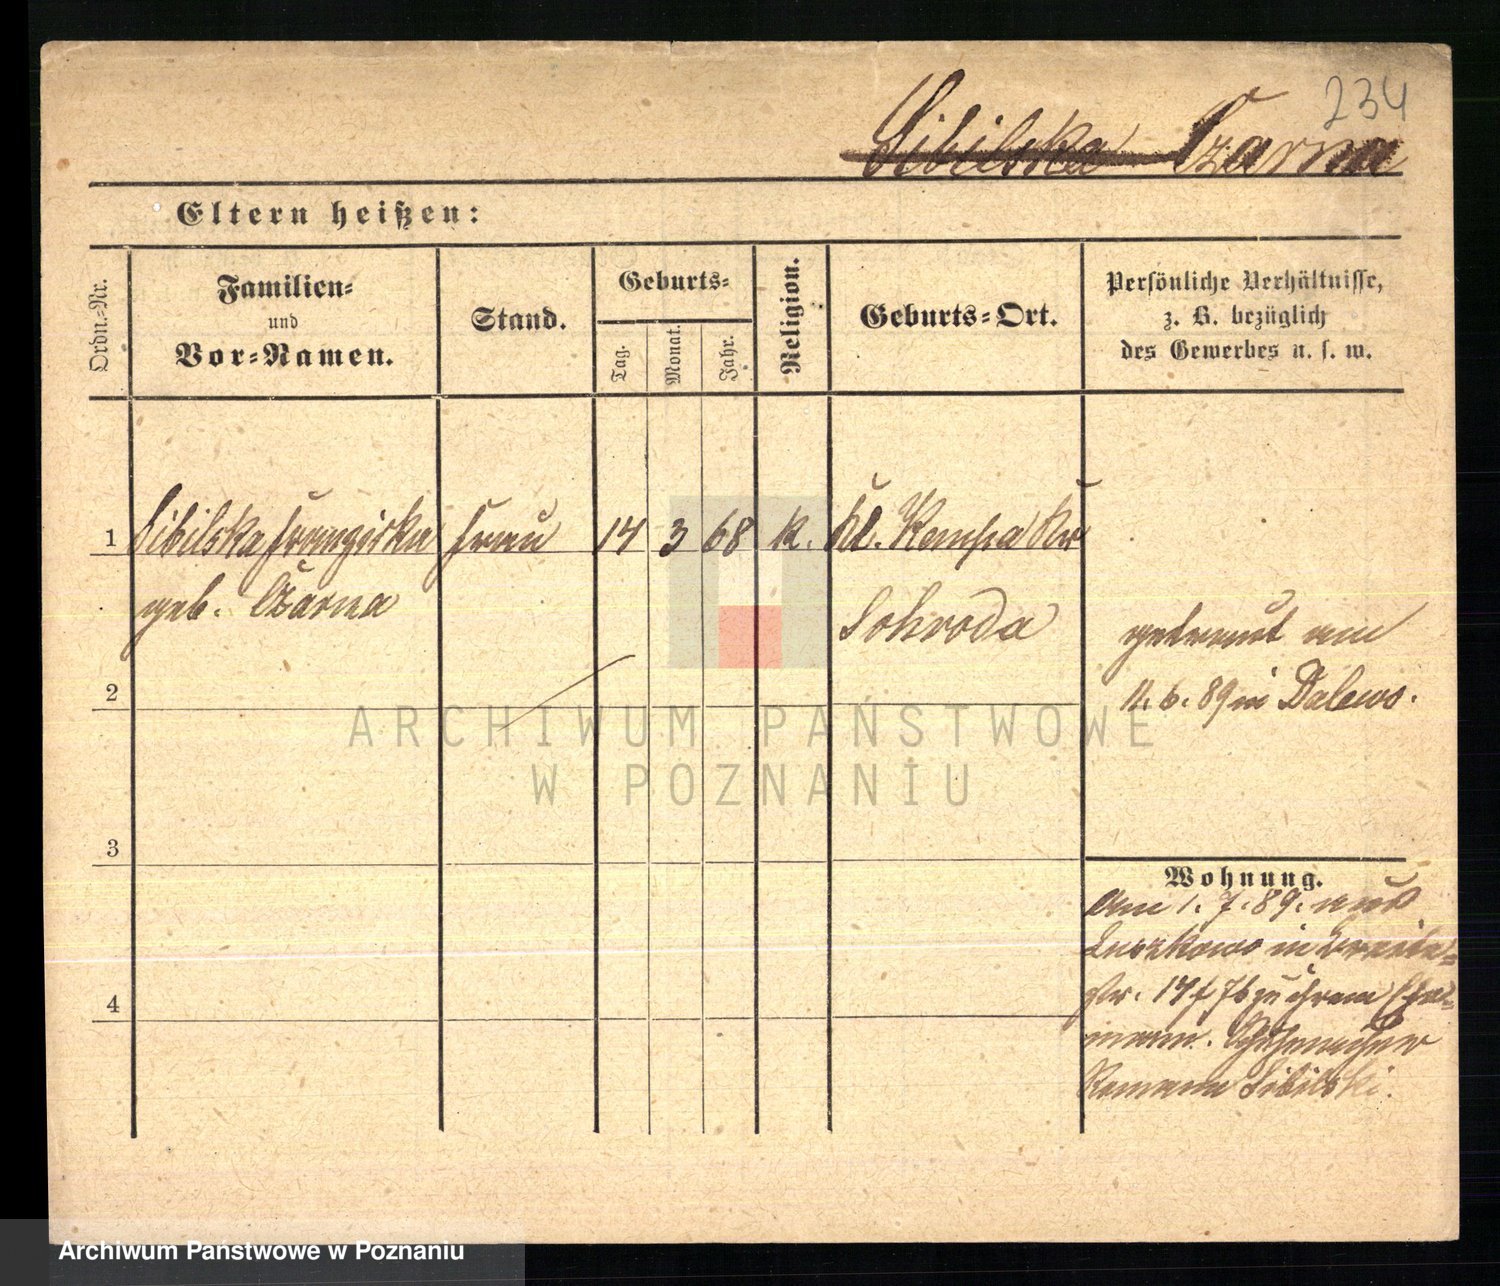 234
Sibilska Czarna
Eltern heißen:
Ordn.-Nr.
Familien-
und
Vor-Namen.
Stand.
Geburts-
Tag.
Monat.
Jahr.
Religion.
Geburts-Ort.
Persönliche Verhältnisse,
z. B. bezüglich
des Gewerbes u. s. w.
1 Sibilska Franziska Frau 14 3 68 k. Kl. Kempa Kr
geb. Czarna
Schroda
getraut am
11. 6. 89 in Dalewo.
2
3
4
Wohnung.
Am 1. 7. 89. aus
Luszkowo in Breite-
str. 14 zu ihrem Ehe-
mann.
Roman Sibilski.
ARCHIWUM PAŃSTWOWE
W POZNANIU
Archiwum Państwowe w Poznaniu